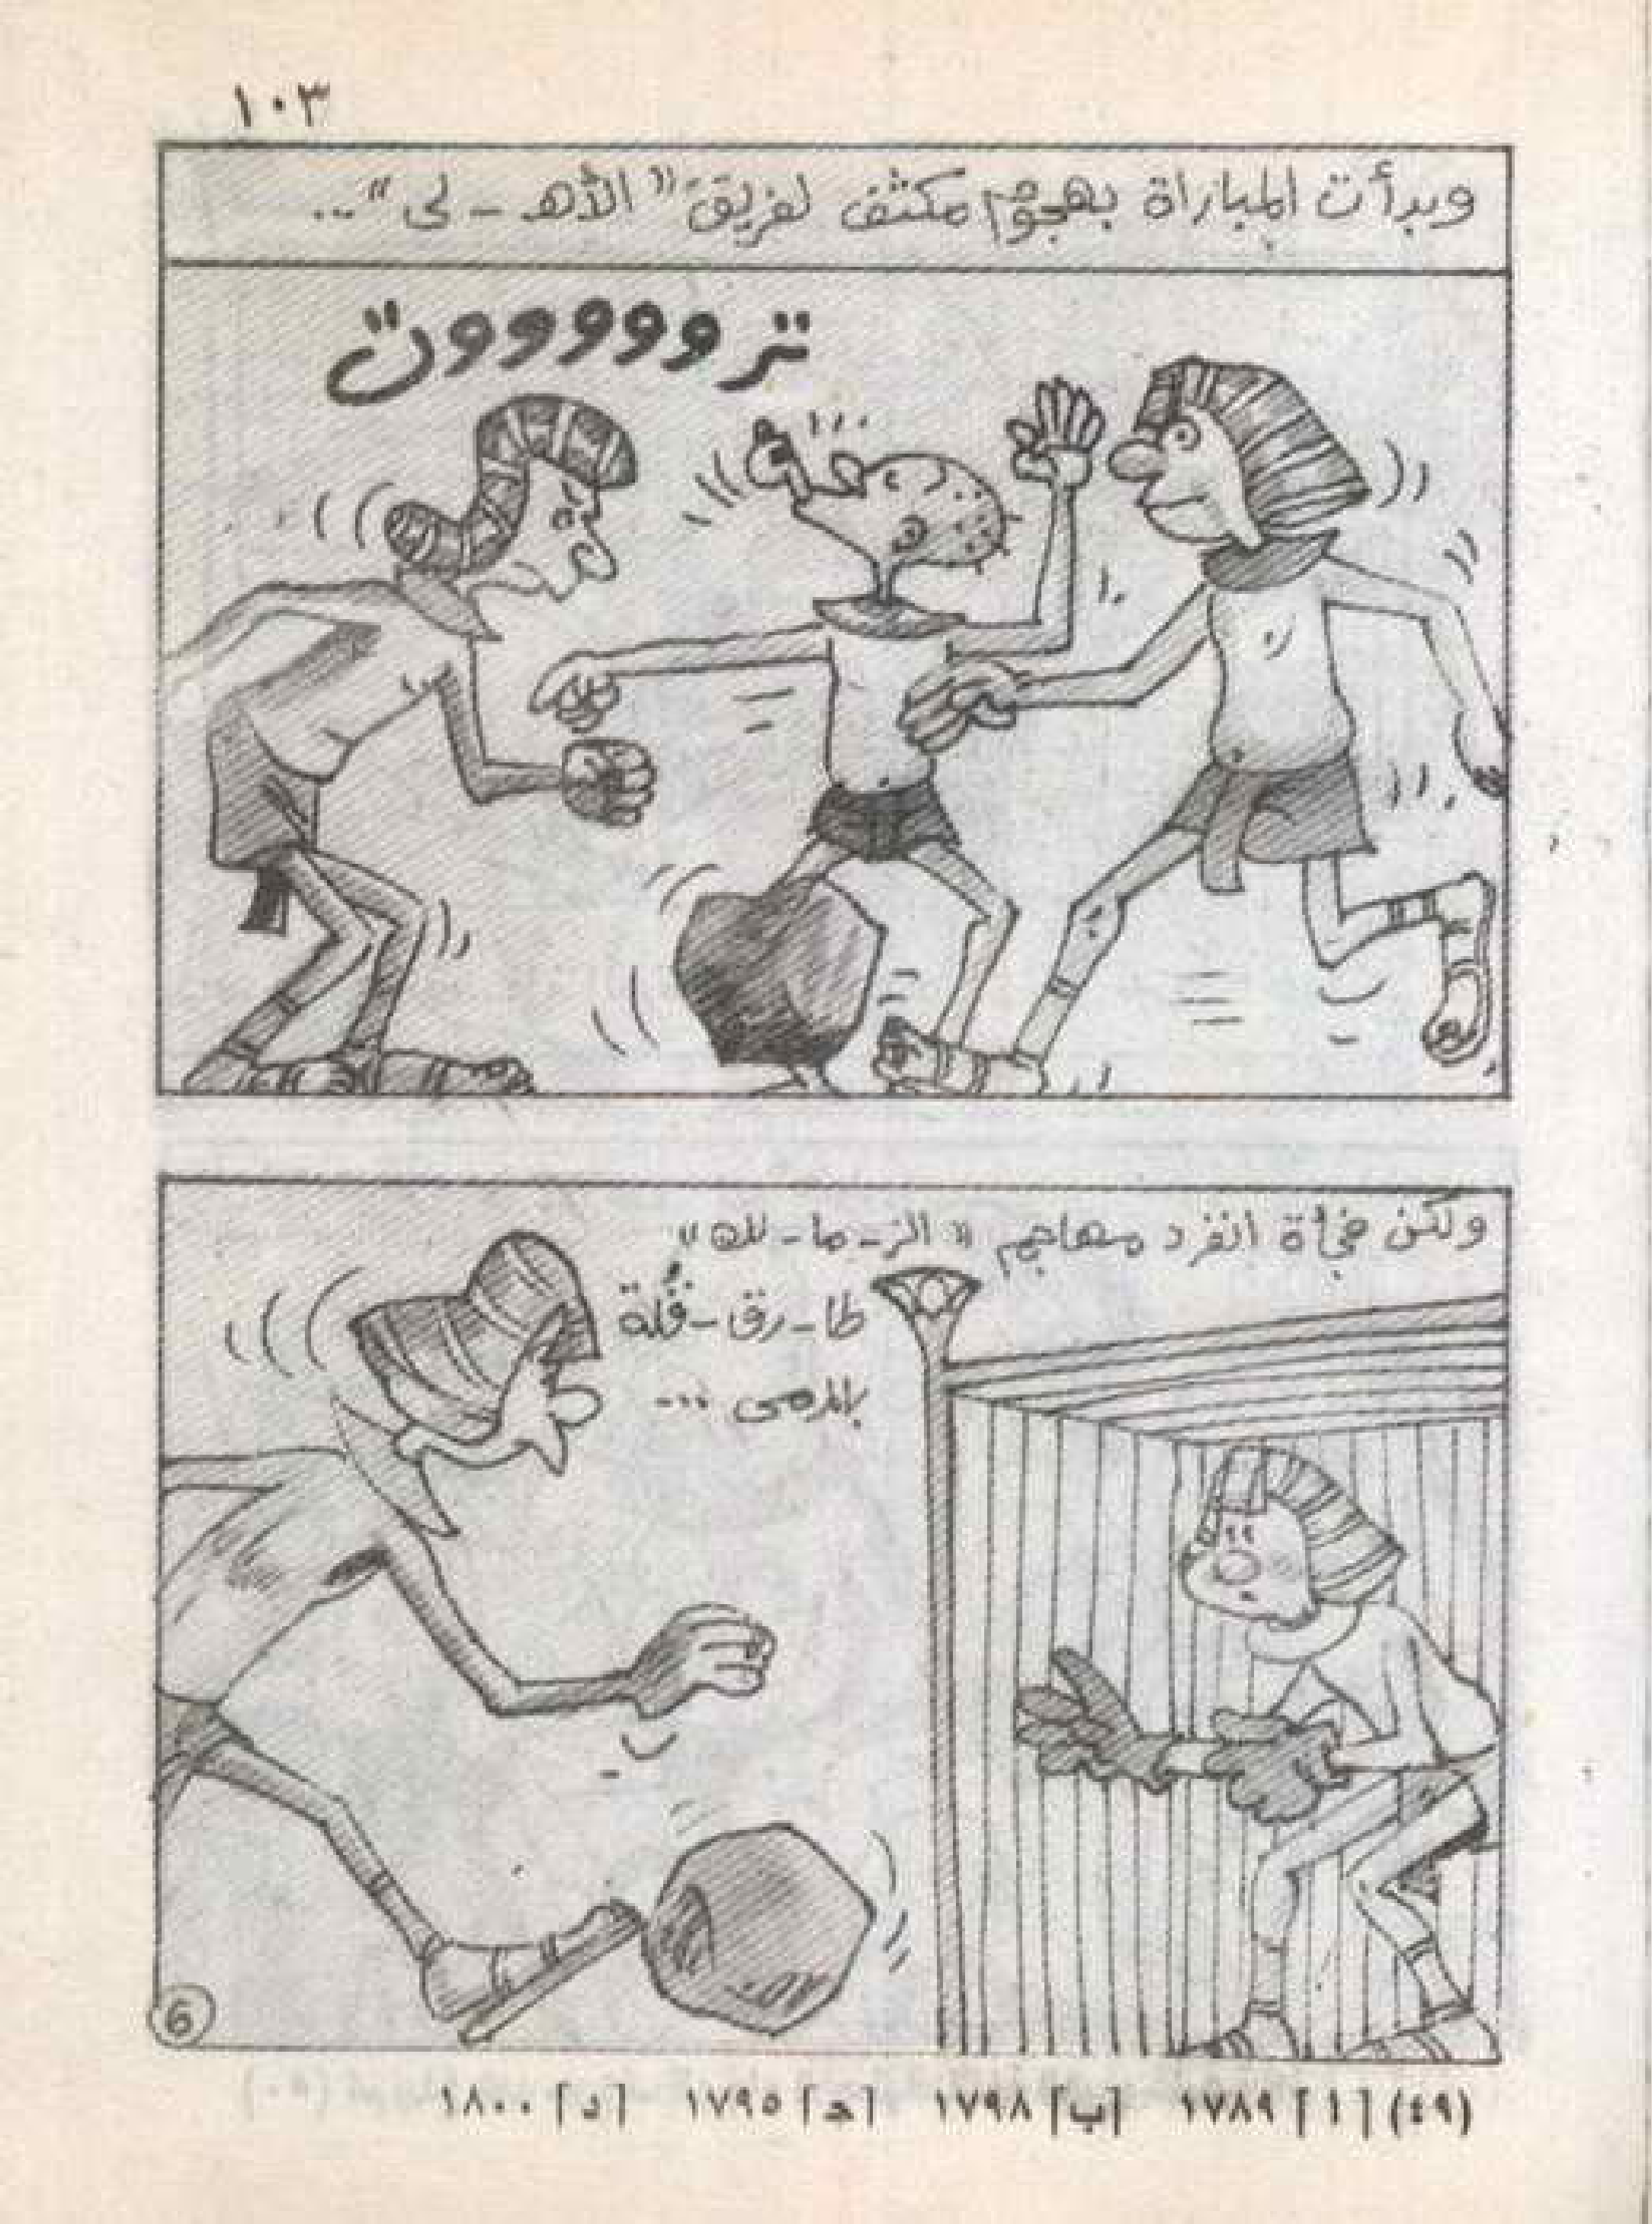 ١٠٣
وبدأت المباراة بهجوم مكثف لفريق "الأهـ - لى" ...
تروووووت
ولكن فجأة انفرد مهاجم "الز - ما - لك"
طا - رق - قُلة
بالمرمى ...
6
(٤٩) [أ] ١٧٨٩ [ب] ١٧٩٨ [جـ] ١٧٩٥ [د] ١٨٠٠